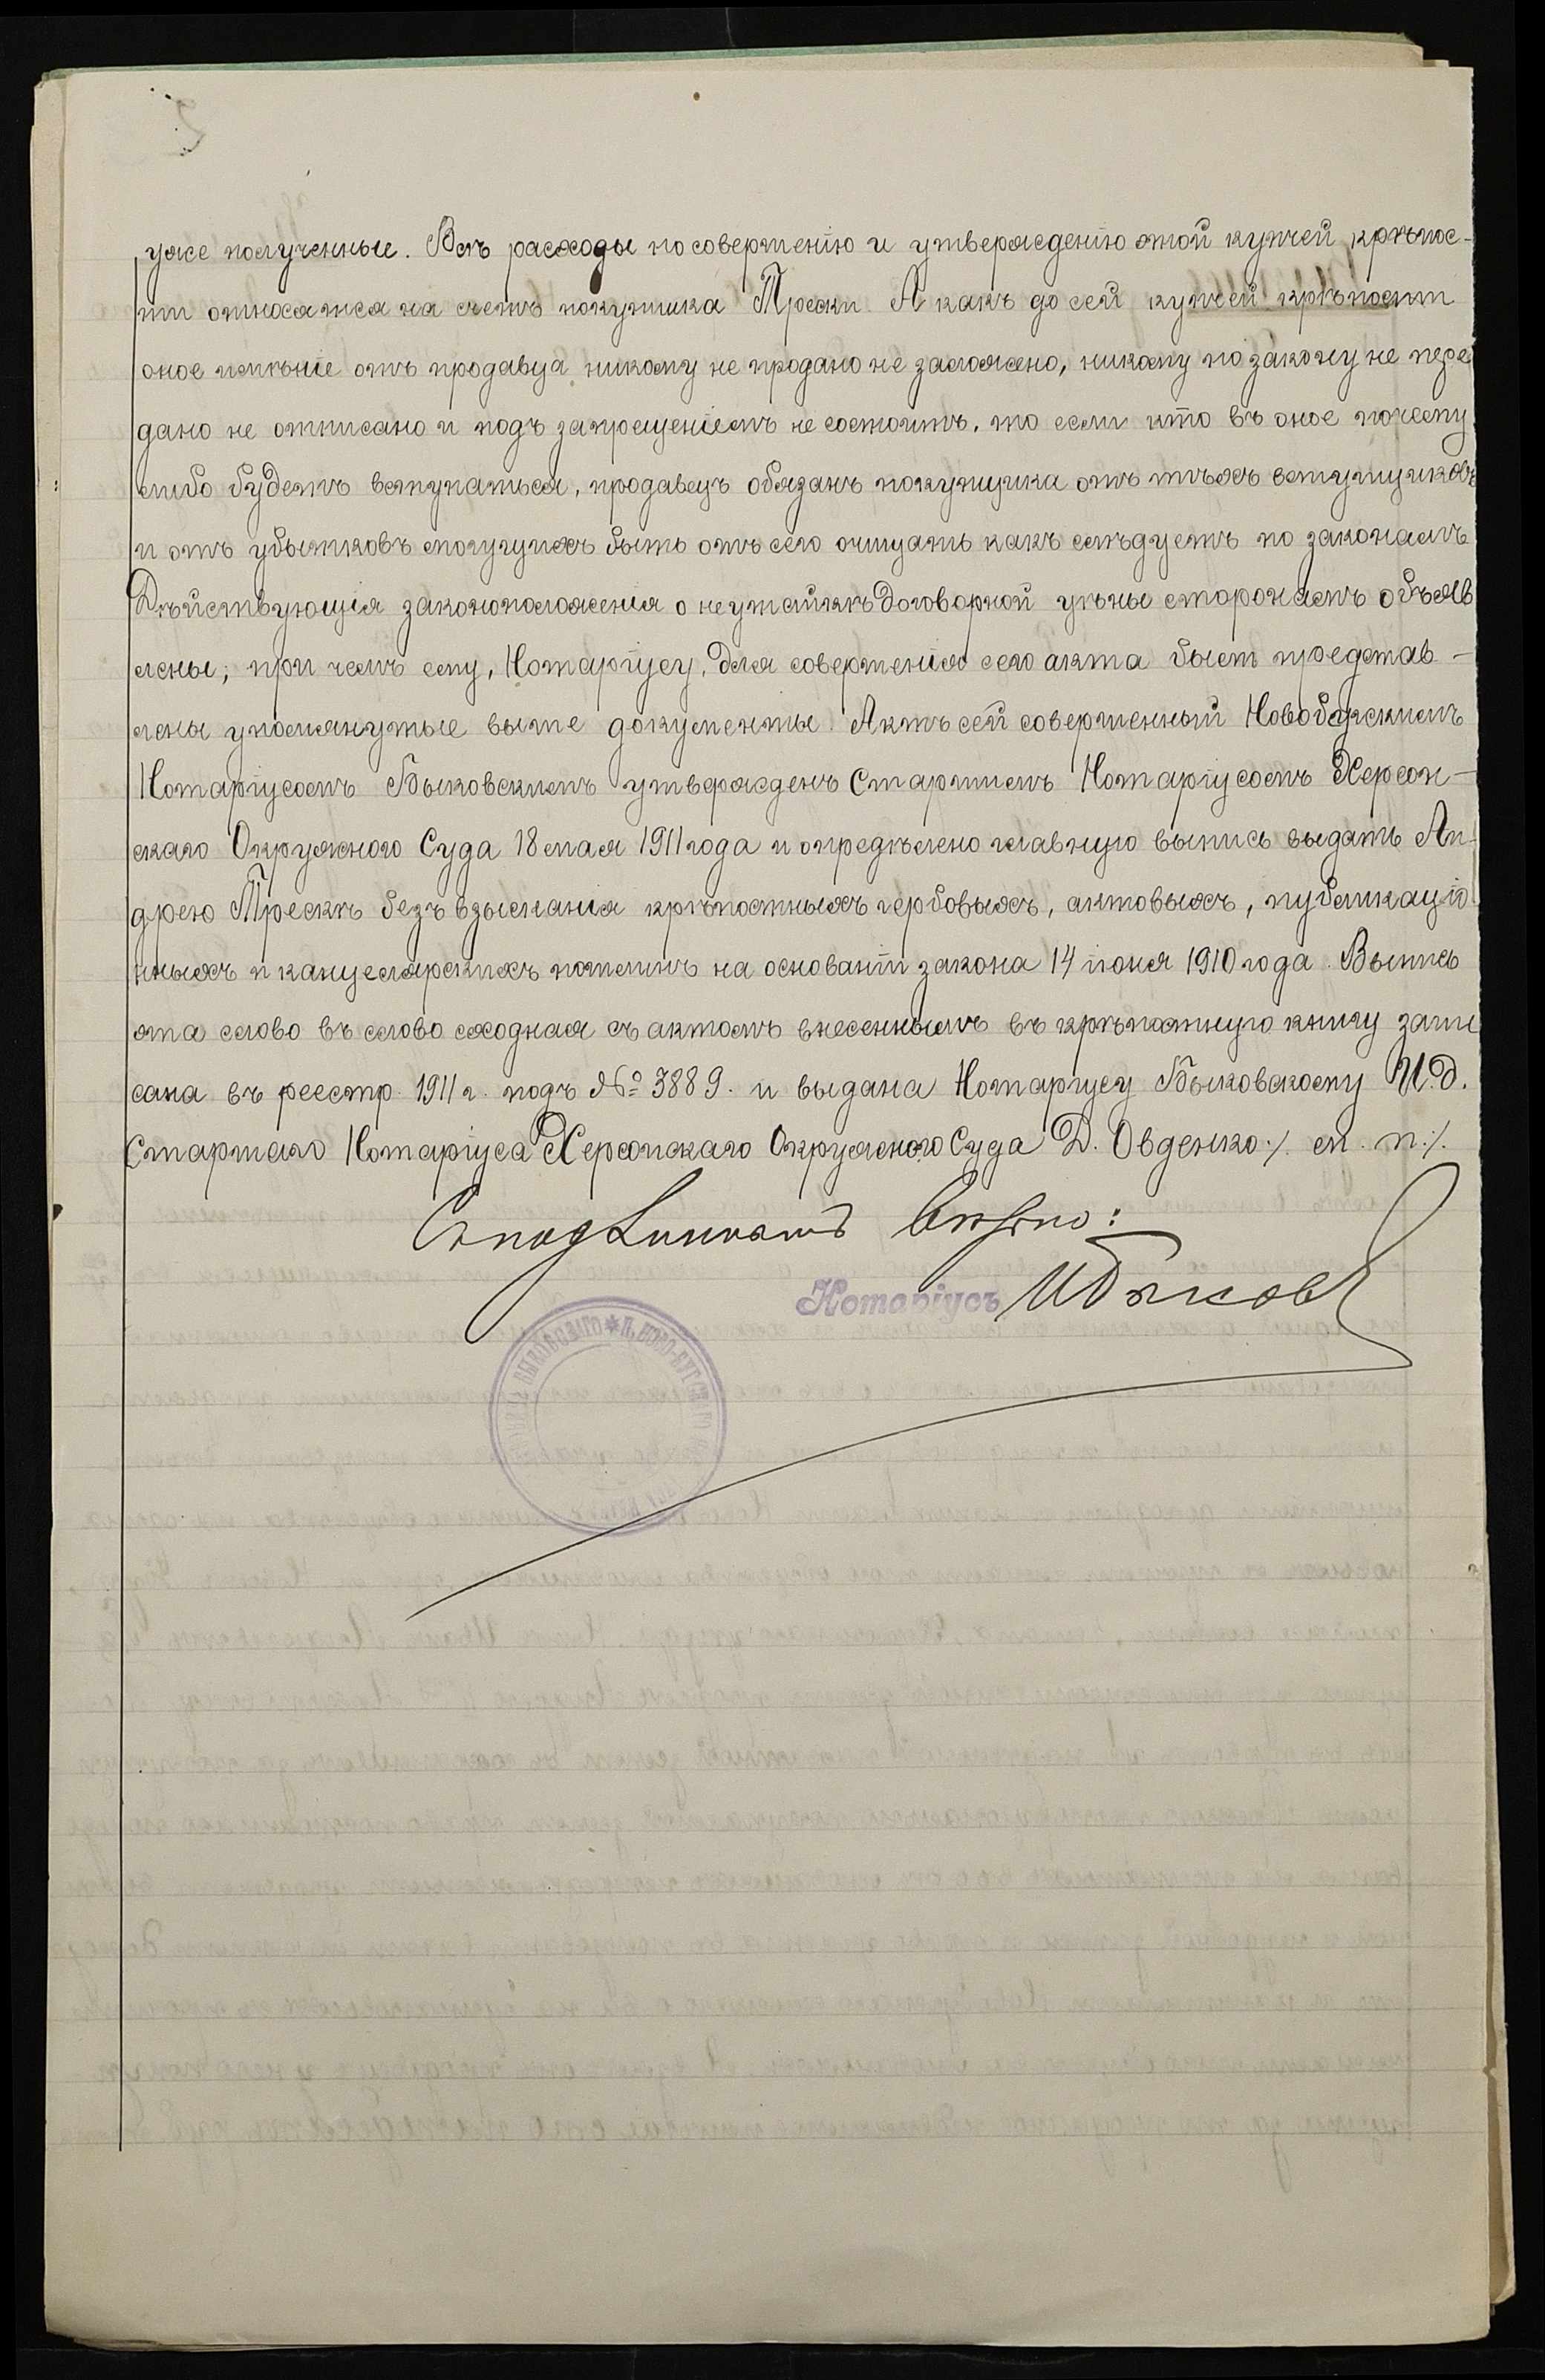 уже полученные. Всѣ расходы по совершенію и утвержденію этой купчей крѣпос-
ти относятся на счетъ покупщика Трески А какъ до сей купчей крѣпости
оное имѣніе отъ продавца никому не продано не заложено, никому по закону не пере
дано не отписано и подъ запрещеніемъ не состоитъ, то если кто въ оное почему
либо будетъ вступаться, продавецъ обязанъ покупщика отъ тѣхъ вступщиковъ
и отъ убытковъ могущихъ быть отъ сего очищать какъ слѣдуетъ по законамъ
Дѣйствующія законоположенія о неутайкѣ договорной цѣны сторонамъ объяв
лены; при чемъ ему, Нотаріусу, для совершенія сего акта были представ-
лены упомянутые выше документы. Актъ сей совершенный Новобугскимъ
Нотаріусомъ Быковскимъ утвержденъ Старшимъ Нотаріусомъ Херсон-
скаго Окружного Суда 18 мая 1911 года и опредѣлено главную выпись выдать Ан-
дрею Трескѣ безъ взысканія крѣпостныхъ гербовыхъ, актовыхъ, публикаціо
нныхъ и канцелярскихъ пошлинъ на основаніи закона 14 іюня 1910 года. Выпись
эта слово въ слово сходная съ актомъ внесеннымъ въ крѣпостную книгу запи
сана въ реестр. 1911 г. подъ № 3889. и выдана Нотаріусу Быковскому И.д.
Старшаго Нотаріуса Херсонскаго Окружного Суда Д. Овденко ./. м. п. ./.
Съ подлиннымъ вѣрно:
Нотаріусъ